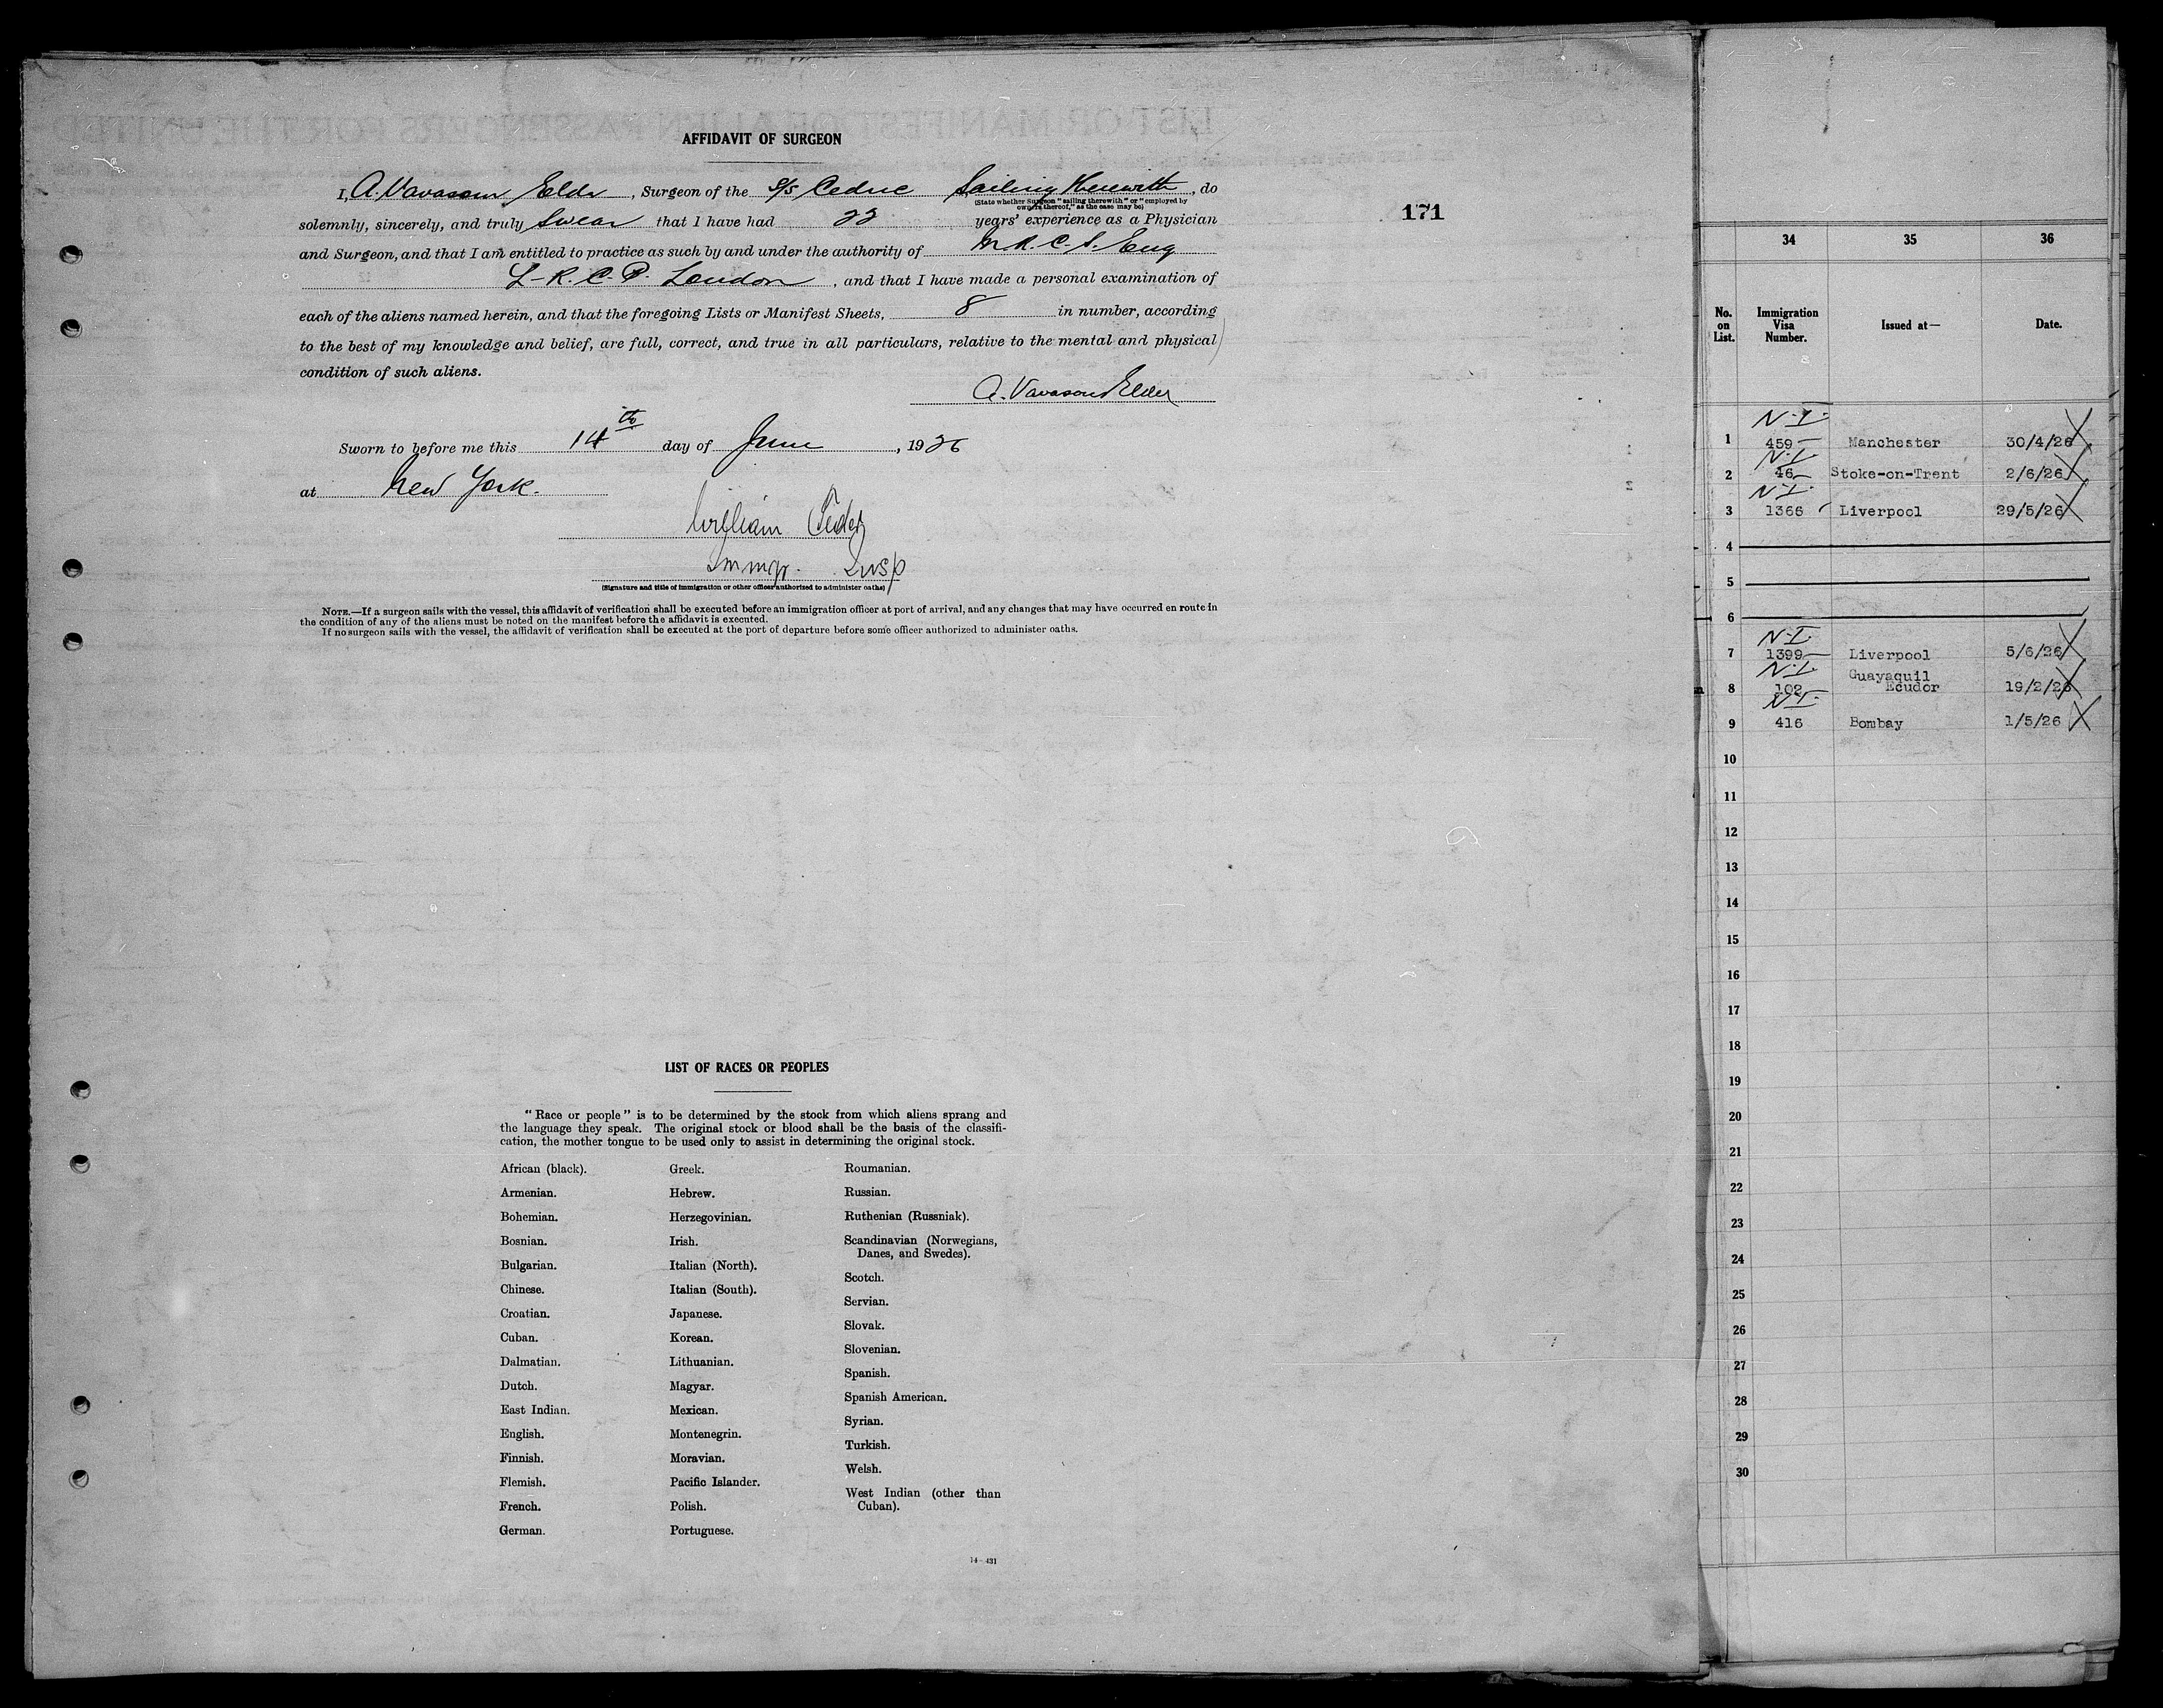 AFFIDAVIT OF SURGEON
I, A. Vavasour Elder, Surgeon of the S/S Cedric Sailing Therewith, do
(State whether Surgeon "sailing therewith" or "employed by
owners thereof," as the case may be)
solemnly, sincerely, and truly Swear that I have had 22 years' experience as a Physician
and Surgeon, and that I am entitled to practice as such by and under the authority of M.R.C.S. Eng
L.R.C.P. London, and that I have made a personal examination of
each of the aliens named herein, and that the foregoing Lists or Manifest Sheets, 8 in number, according
to the best of my knowledge and belief, are full, correct, and true in all particulars, relative to the mental and physical
condition of such aliens.
A. Vavasour Elder
Sworn to before me this 14th day of June, 1926
at New York.
William
Immgr. Insp
(Signature and title of immigration or other officer authorized to administer oaths)
NOTE.—If a surgeon sails with the vessel, this affidavit of verification shall be executed before an immigration officer at port of arrival, and any changes that may have occurred en route in
the condition of any of the aliens must be noted on the manifest before the affidavit is executed.
If no surgeon sails with the vessel, the affidavit of verification shall be executed at the port of departure before some officer authorized to administer oaths.
171
LIST OF RACES OR PEOPLES
"Race or people" is to be determined by the stock from which aliens sprang and
the language they speak. The original stock or blood shall be the basis of the classifi-
cation, the mother tongue to be used only to assist in determining the original stock.
African (black).
Armenian.
Bohemian.
Bosnian.
Bulgarian.
Chinese.
Croatian.
Cuban.
Dalmatian.
Dutch.
East Indian.
English.
Finnish.
Flemish.
French.
German.
Greek.
Hebrew.
Herzegovinian.
Irish.
Italian (North).
Italian (South).
Japanese.
Korean.
Lithuanian.
Magyar.
Mexican.
Montenegrin.
Moravian.
Pacific Islander.
Polish.
Portuguese.
Roumanian.
Russian.
Ruthenian (Russniak).
Scandinavian (Norwegians,
Danes, and Swedes).
Scotch.
Servian.
Slovak.
Slovenian.
Spanish.
Spanish American.
Syrian.
Turkish.
Welsh.
West Indian (other than
Cuban).
14—431
34 35 36
No. on List. Immigration Visa Number. Issued at— Date.
N.I.
1 459 Manchester 30/4/26
N.I.
2 46 Stoke-on-Trent 2/6/26
N.I.
3 1366 Liverpool 29/5/26
4
5
6
N.I.
7 1399 Liverpool 5/6/26
N.I.
Guayaquil
8 102 Ecudor 19/2/26
N.I.
9 416 Bombay 1/5/26
10
11
12
13
14
15
16
17
18
19
20
21
22
23
24
25
26
27
28
29
30